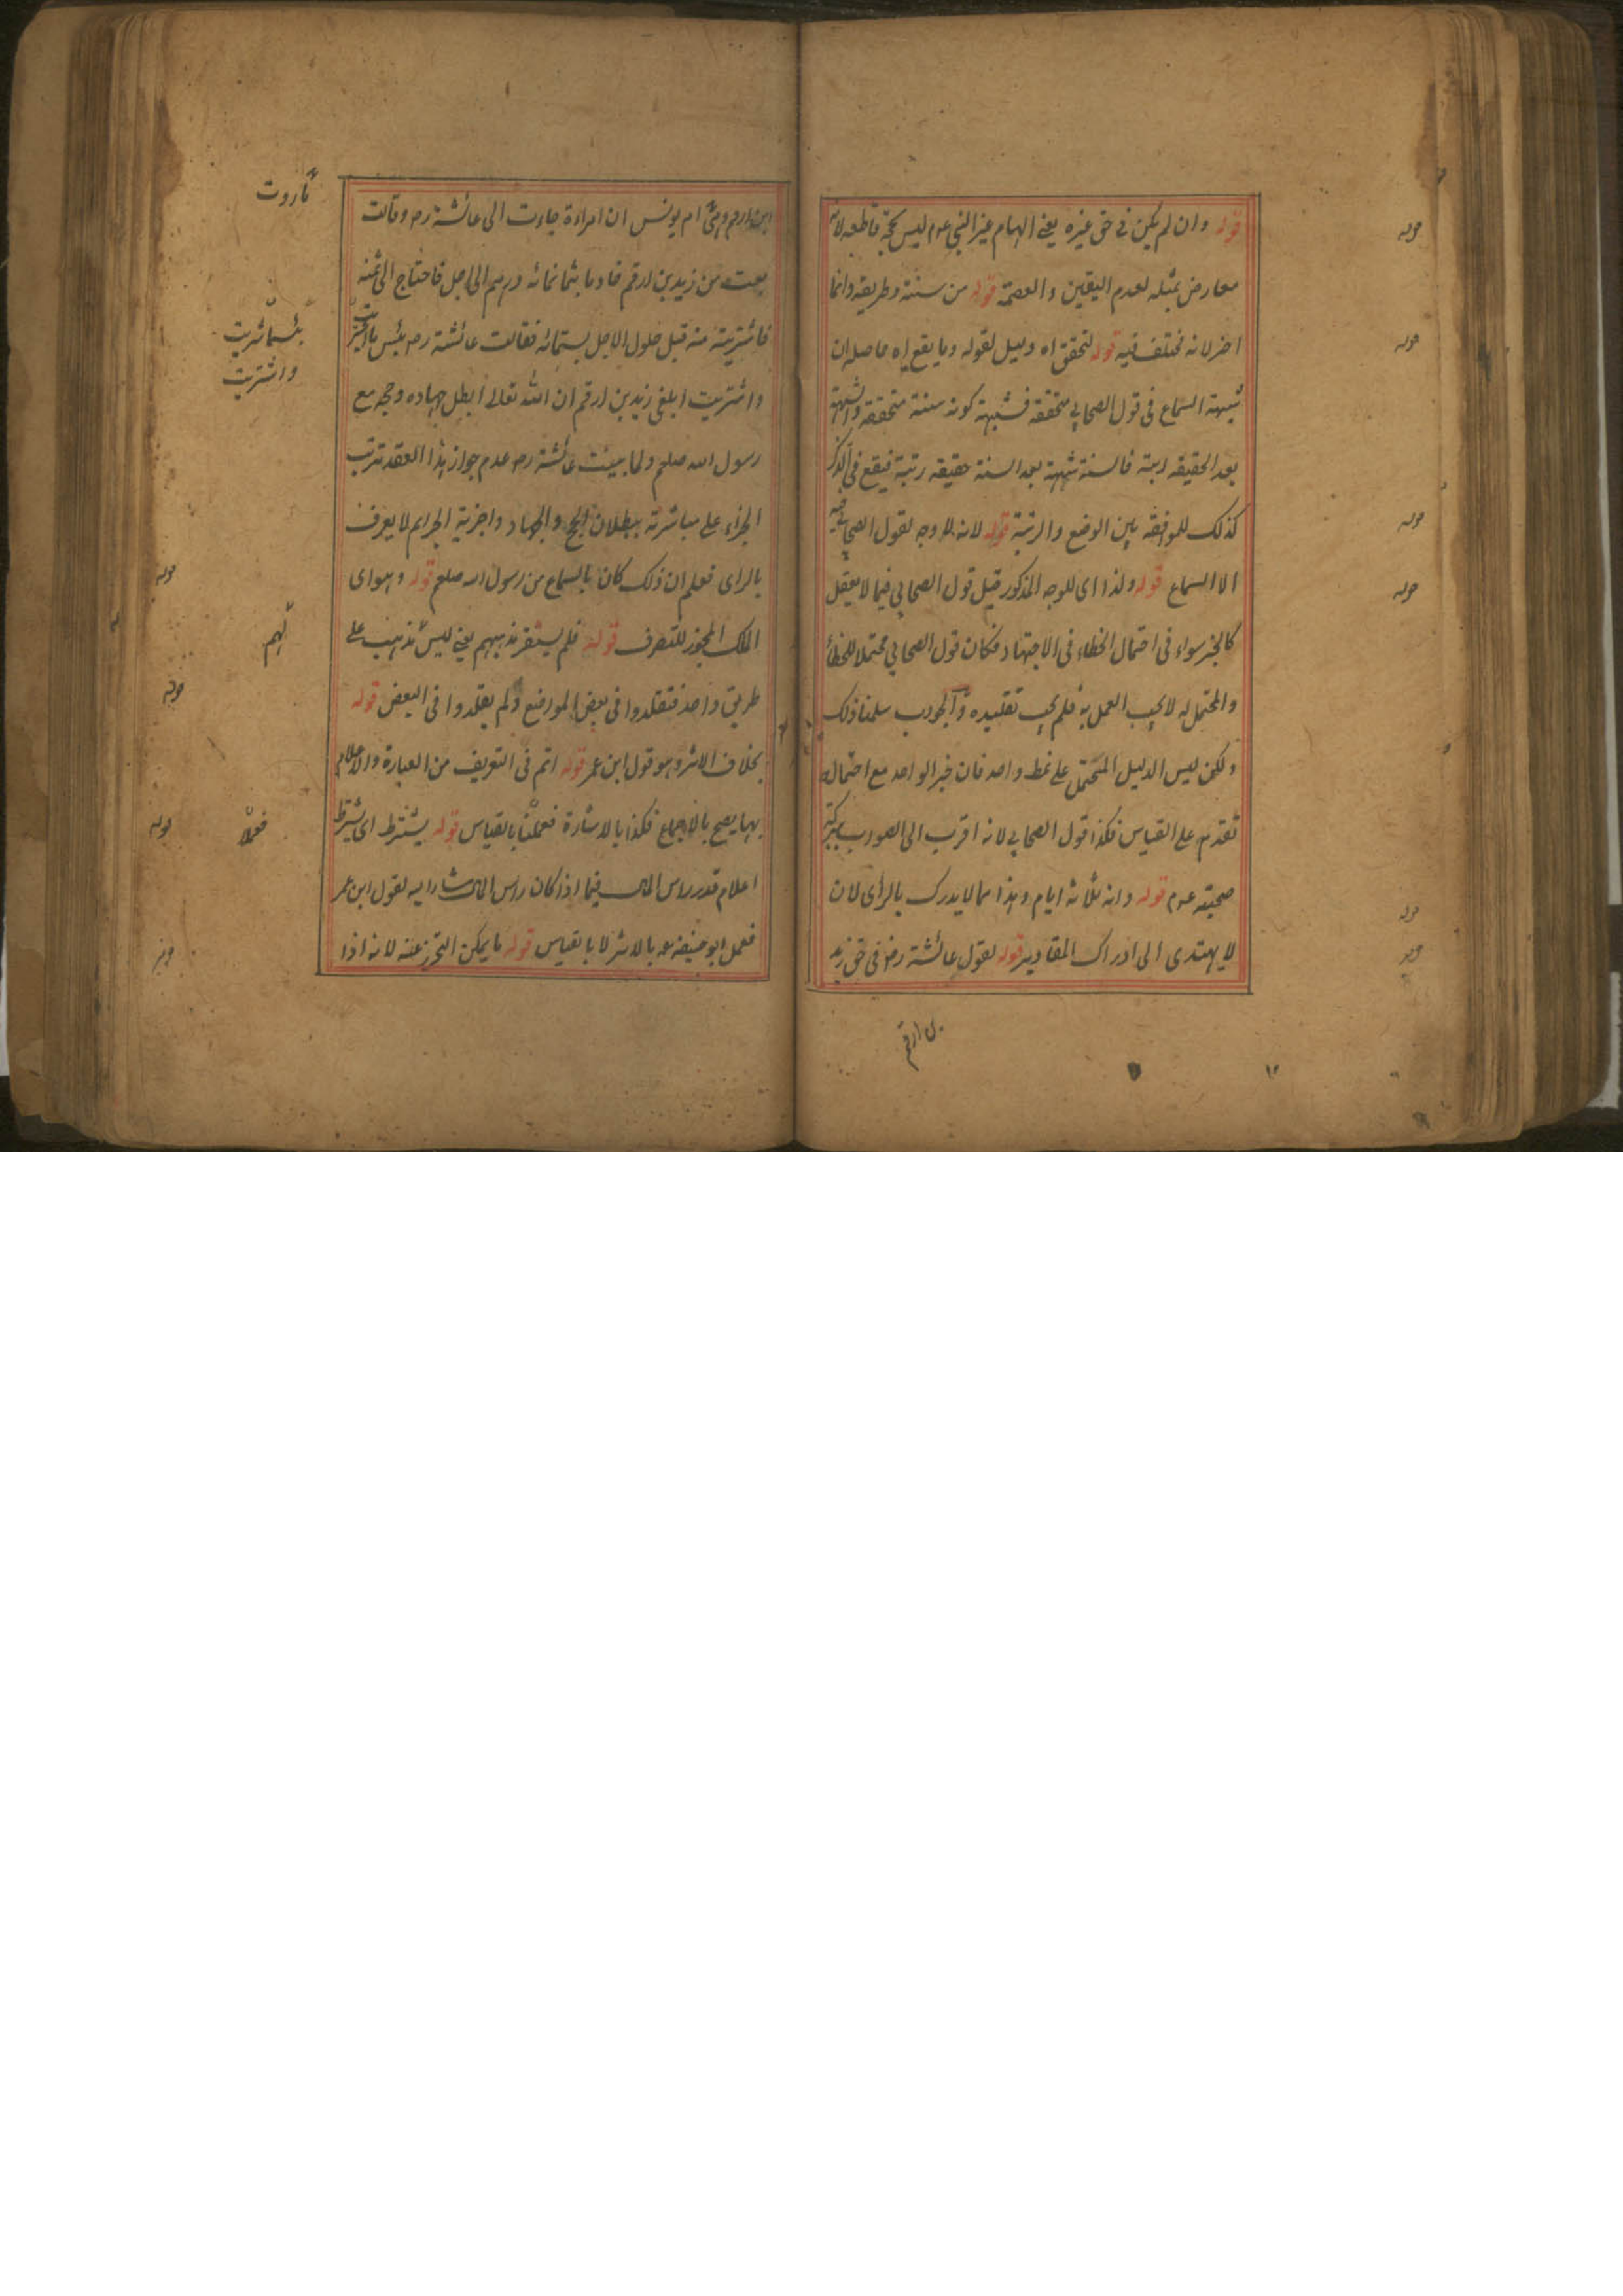 قوله وان لم يكن في حق غيره يعني الهام غير النبي عوم ليس بحجة قاطعه لانه
معارض بمثله لعدم اليقين والعصمة قوله من سنته وطريقه وانما
اخر لانه مختلف فيه قوله لتحقق اه دليل لقوله وما يقع اه حاصله ان
شبهة السماع في قول الصحابي متحققة فشبهة كونه سنة متحققة والشبهة
بعد الحقيقه رتبة فالسنة شبهة بعد السنة حقيقه رتبة فيقع في الذكر
كذلك للموافقة بين الوضع والرتبة قوله لانه لا وجه لقول الصحابي فيه
الا السماع قوله ولذا اى للوجه المذكور قيل قول الصحابي فيما لا يعقل
كالخبر سواء في احتمال الخطاء في الاجتهاد فكان قول الصحابي محتملا للخطأ
والمحتمل لا يجب العمل به فلم يجب تقليده والجواب سلمنا ذلك
ولكن ليس الدليل المحتمل على نمط واحد فان خبر الواحد مع احتماله
تقدم على القياس فكذا قول الصحابي لانه اقرب الى الصواب ببركة
صحبته عوم قوله وانه ثلاثة ايام وهذا مما لا يدرك بالرأى لان
لا يهتدى الى ادراك المقادير قوله لقول عائشة رض في حق زيد
بن ارقم
ام يونس ان امراءة جاءت الى عائشة رم وقالت
بعت من زيد بن ارقم خادما بثمانمائه درهم الى اجل فاحتاج الى ثمنه
فاشتريته منه قبل حلول الاجل بستمائه فقالت عائشة رم بئس ما اشتريت
واشتريت ابلغي زيد بن ارقم ان الله تعالى ابطل جهاده وحجه مع
رسول الله صلعم ولما بينت عائشة رم عدم جواز هذا العقد ترتب
الجزاء على مباشرته ببطلان الحج والجهاد واجزية الجرايم لا يعرف
بالراى فعلم ان ذلك كان بالسماع من رسول الله صلعم قوله وهو اى
الملك المجوز للتصرف قوله فلم يستقر مذهبهم يعني ليس مذهب على
طريق واحد فتقلدوا في بعض المواضع ولم يقلدوا في البعض قوله
بخلاف الاثر وهو قول ابن عمر قوله اتم في التعريف من العبارة والاعلام
بها يصح بالاجماع فكذا بالاشارة فعملنا بالقياس قوله يشترط اى يشترط
اعلام قدر راس المال فيما اذا كان راس المال مشارا اليه لقول ابن عمر
فعمل ابو حنيفة رم بالاثر لا بالقياس قوله ما يمكن التحرز عنه لانه اذا
ما روت
بئسما شريت
واشتريت
لهم
فعملا